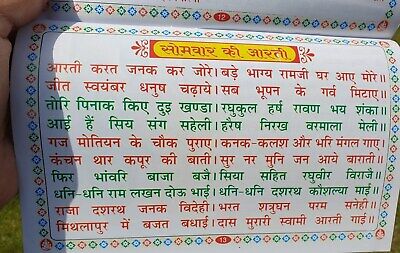 12
सोमवार की आरती
आरती करत जनक कर जोरे। बड़े भाग्य रामजी घर आए मोरे॥
जीत स्वयंबर धनुष चढ़ाये। सब भूपन के गर्व मिटाए॥
तोरि पिनाक किए दुइ खण्डा। रघुकुल हर्ष रावण भय शंका।
आई हैं सिय संग सहेली। हरेष निरख वरमाला मेली॥
गज मोतियन के चौक पुराए। कनक-कलश और भरि मंगल गाए॥
कंचन थार कपूर की बाती। सुर नर मुनि जन आये बाराती॥
फिर भांवरि बाजा बजै। सिया सहित रघुवीर विराजै॥
धनि-धनि राम लखन दोऊ भाई। धनि-धनि दशरथ कौशल्या माई॥
राजा दशरथ जनक विदेही। भरत शत्रुघन परम सनेही॥
मिथलापुर में बजत बधाई। दास मुरारी स्वामी आरती गाई॥
13